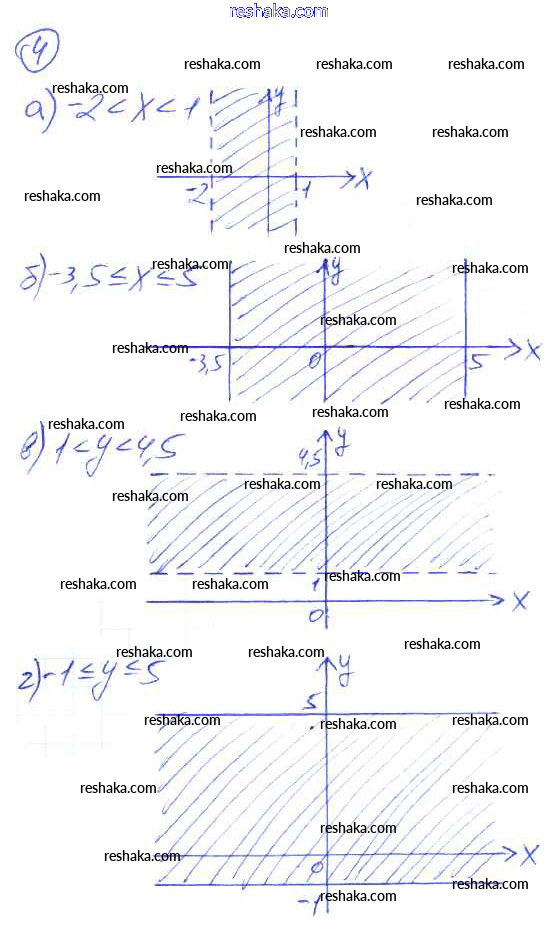 reshaka.com
4
reshaka.com reshaka.com reshaka.com
reshaka.com
а) -2 < x < 1
y
reshaka.com reshaka.com
reshaka.com
-2 1 x
reshaka.com
reshaka.com
reshaka.com
б) -3,5 ≤ x ≤ 5
y
reshaka.com reshaka.com
reshaka.com
reshaka.com
-3,5 0 5 x
reshaka.com
reshaka.com reshaka.com
в) 1 < y < 4,5
4,5 y
reshaka.com reshaka.com
reshaka.com
1
reshaka.com
reshaka.com reshaka.com
0 x
reshaka.com
reshaka.com reshaka.com
г) -1 ≤ y ≤ 5
y
5
reshaka.com reshaka.com reshaka.com
reshaka.com reshaka.com
reshaka.com
reshaka.com
0 x
-1
reshaka.com reshaka.com